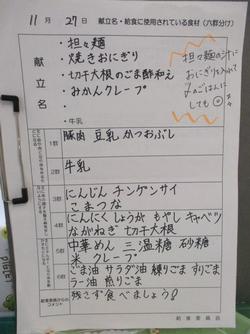 11月 27日 献立名・給食に使用されている食材(六群分け)
献立名
・担々麺
・焼きおにぎり
・切干大根のごま酢和え
・みかんクレープ
・牛乳
担々麺の汁に
おにぎりを入れて
〆のごはんに
しても◎
1群 豚肉 豆乳 かつおぶし
2群 牛乳
3群 にんじん チンゲンサイ
こまつな
4群 にんにく しょうが もやし キャベツ
ながねぎ 切干大根
5群 中華めん 三温糖 砂糖
米 クレープ
6群 ごま油 サラダ油 練りごま すりごま
ラー油 煎りごま
給食委員からの
コメント
残さず食べましょう!
給食委員会